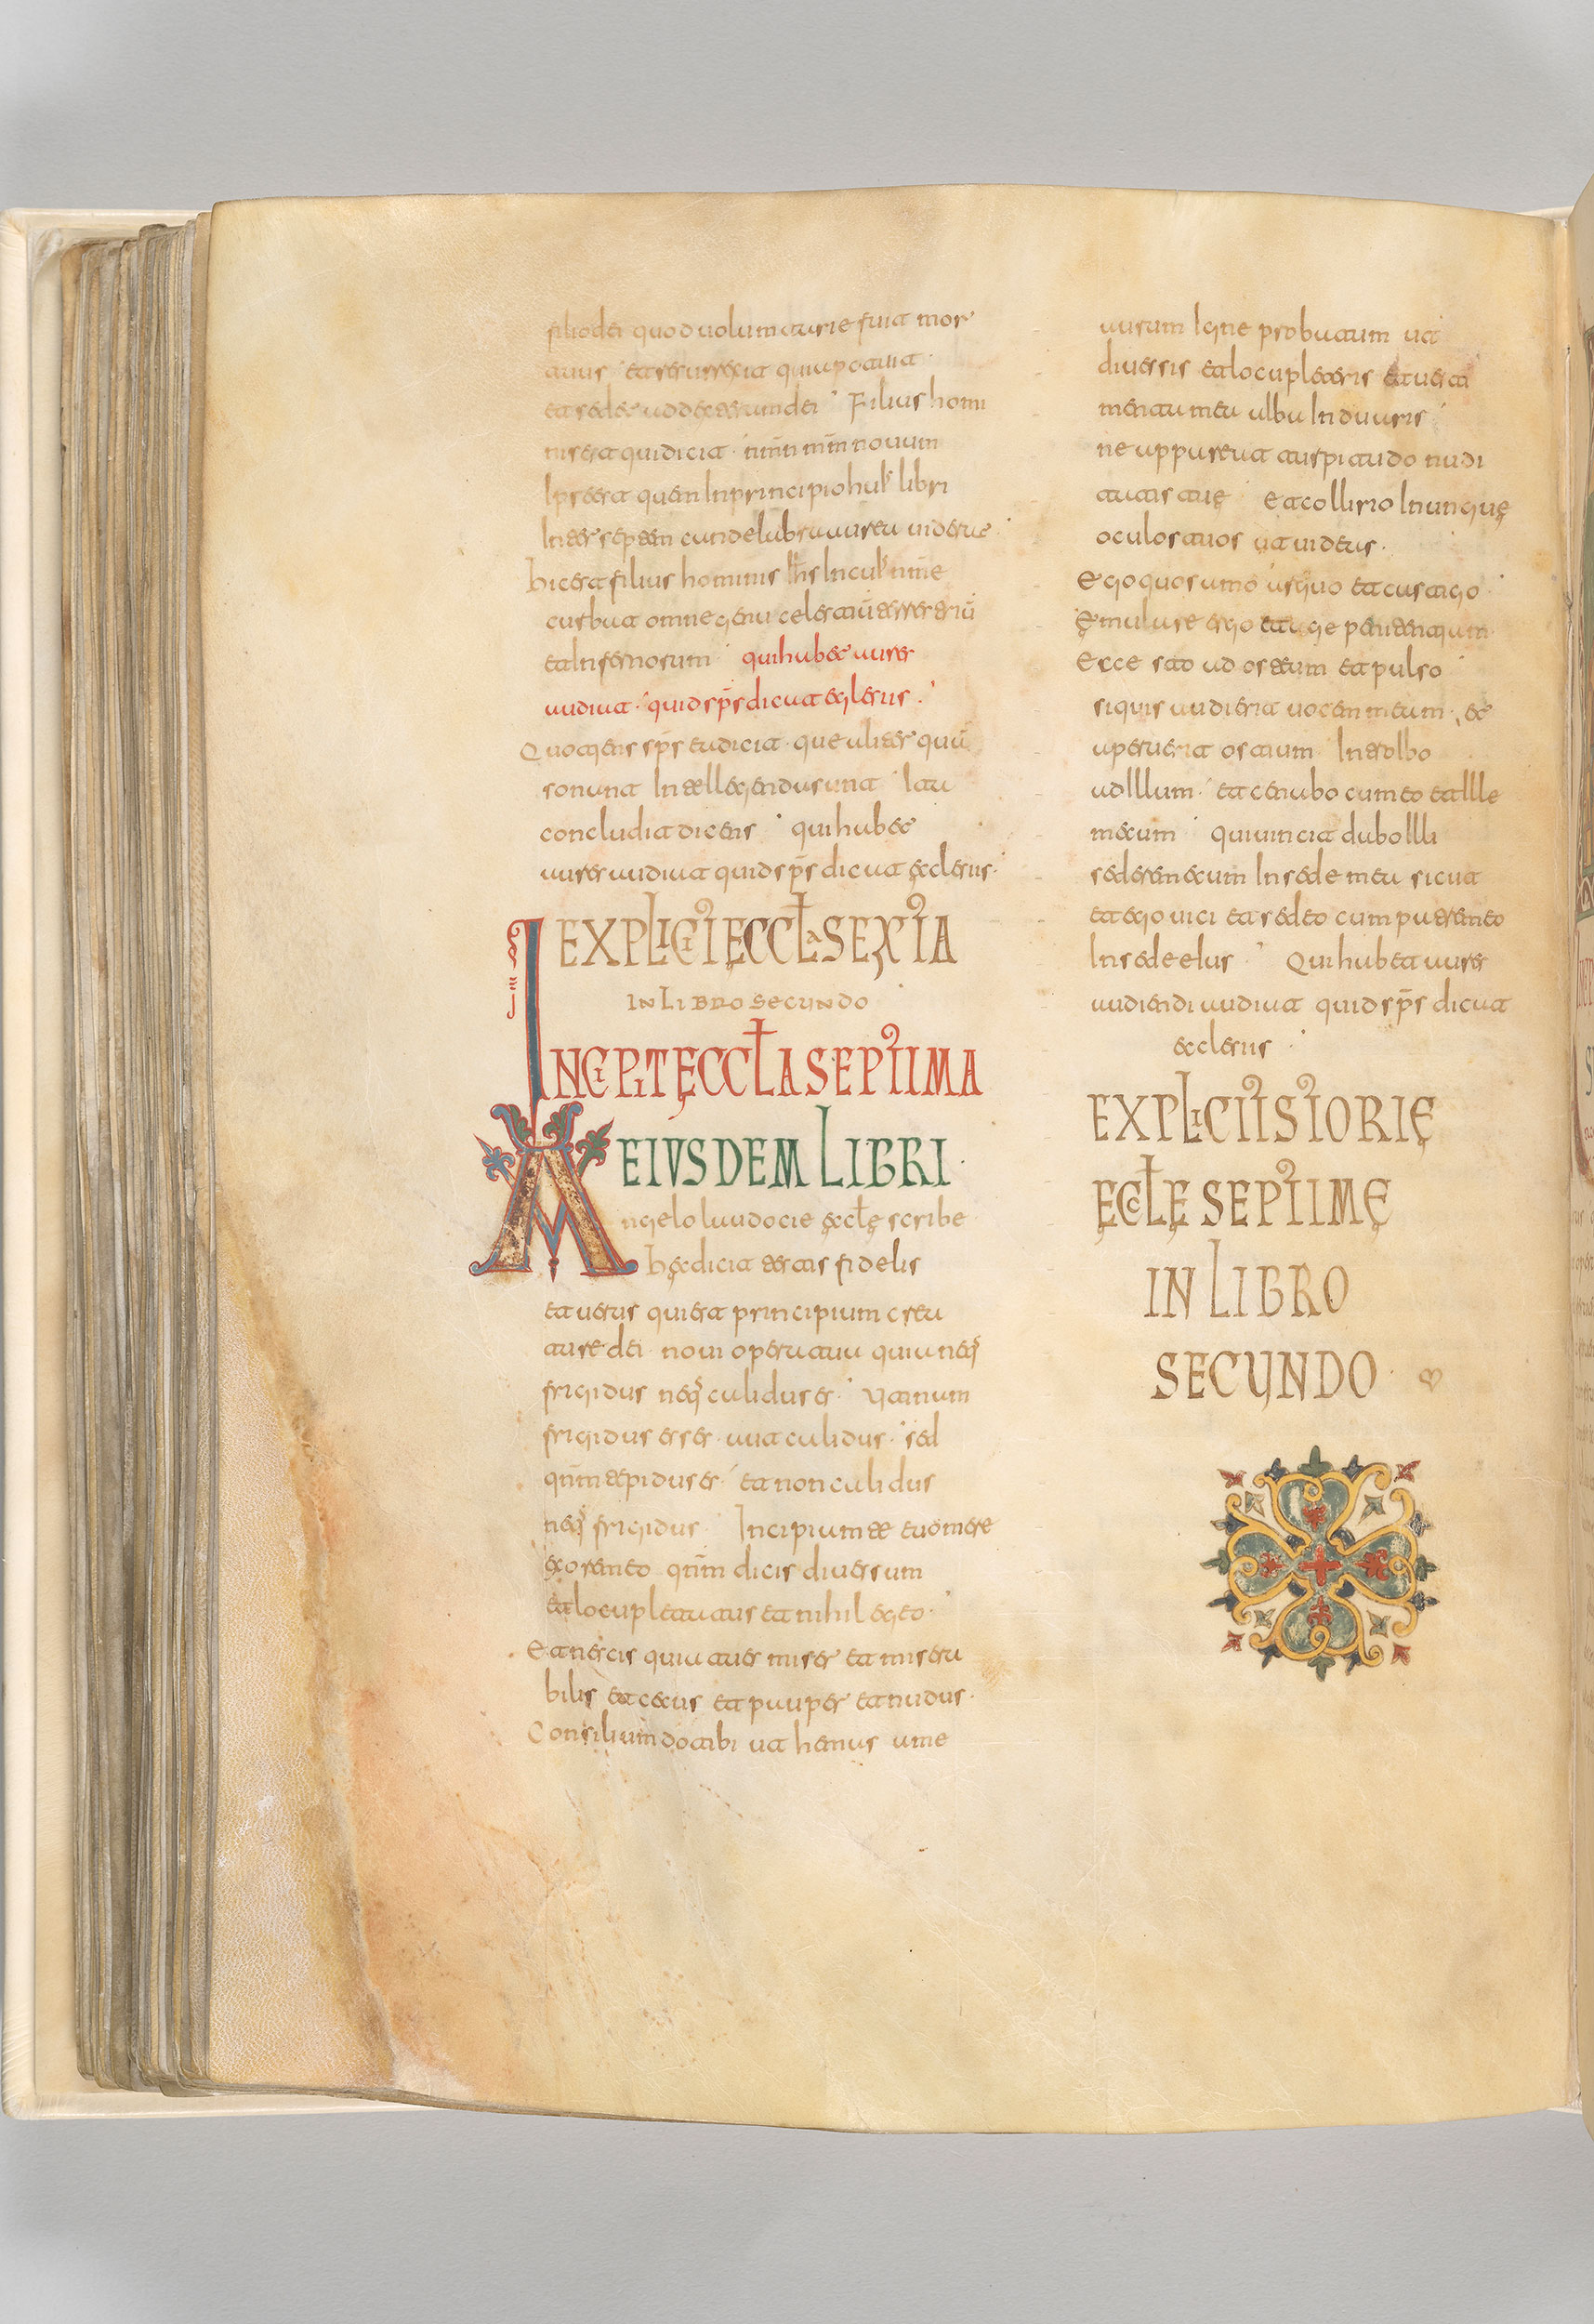 filio dei quod uoluntarie fuit mor
tuus et resurrexit quia potuit
et sedet ad dexteram dei Filius homi
nis est qui dicit nouum
Ipse est quem In principio huiˢ libri
Inter septem candelabra aurea
hic est filius hominis ihs̄ In cuiˢ nm̄e
curbat omne genu celestiū terrestriū
et Infernorum qui habet aures
audiat quid sp̄s dicat eglesiis
Quotiens sp̄s dicit que aliter quā
sonant Intellegenda sunt Ita
concludit dicens qui habet
aures audiat quid sp̄s dicat ęcclesiis
EXPLICIT ĘCCŁA SEXTA
IN LIBRO SECUNDO
INCIPIT ĘCCŁA SEPTIMA
EIUSDEM LIBRI
Angelo laudocie ęccłę scribe
hęc dicit testis fidelis
et uerus qui est principium crea
ture dei noui opera tua quia neq̄
frigidus neq̄ calidus es Utinam
frigidus esses aut calidus sed
qn̄m tepidus es et non calidus
neq̄ frigidus Incipiam te euomere
ex ore meo qn̄m dicis diues sum
et locupletatus et nihil egeo
Et nescis quia tu es miser et misera
bilis et cecus et pauper et nudus
Consilium do tibi ut hemas a me
aurum Igne probatum ut
diues sis et locupleteris et uesti
menta mea alba Induaris
ne appareat turpitudo nudi
tatis tuę et collirio Inungue
oculos tuos ut uideas
Ego quos amo arguo et castigo
Ęmulare ergo et age penitentiam
Ecce sto ad osteum et pulso
si quis audierit uocem meam et
aperuerit ostium Introibo
ad Illum et cenabo cum eo et Ille
mecum qui uincit dabo Illi
sedere mecum In sede mea sicut
et ego uici et sedeo cum patre meo
In sede eius Qui habet aures
audiendi audiat quid sp̄s dicat
ecclesiis
EXPLICIT ISTORIĘ
ĘCŁĘ SEPTIMĘ
IN LIBRO
SECUNDO